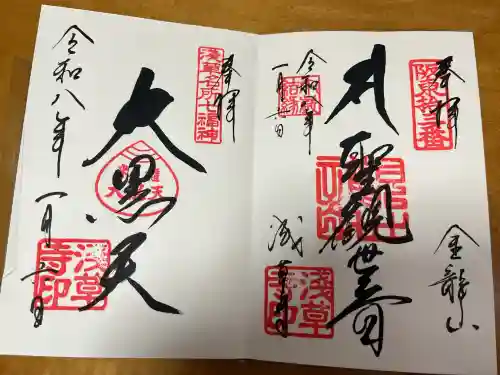 奉拝
阪東拾三番
金龍山
聖観世音
令和八年
一月六日
浅草寺
浅草寺印
奉拝
浅草名所七福神
大黒天
令和八年
一月六日
浅草寺印